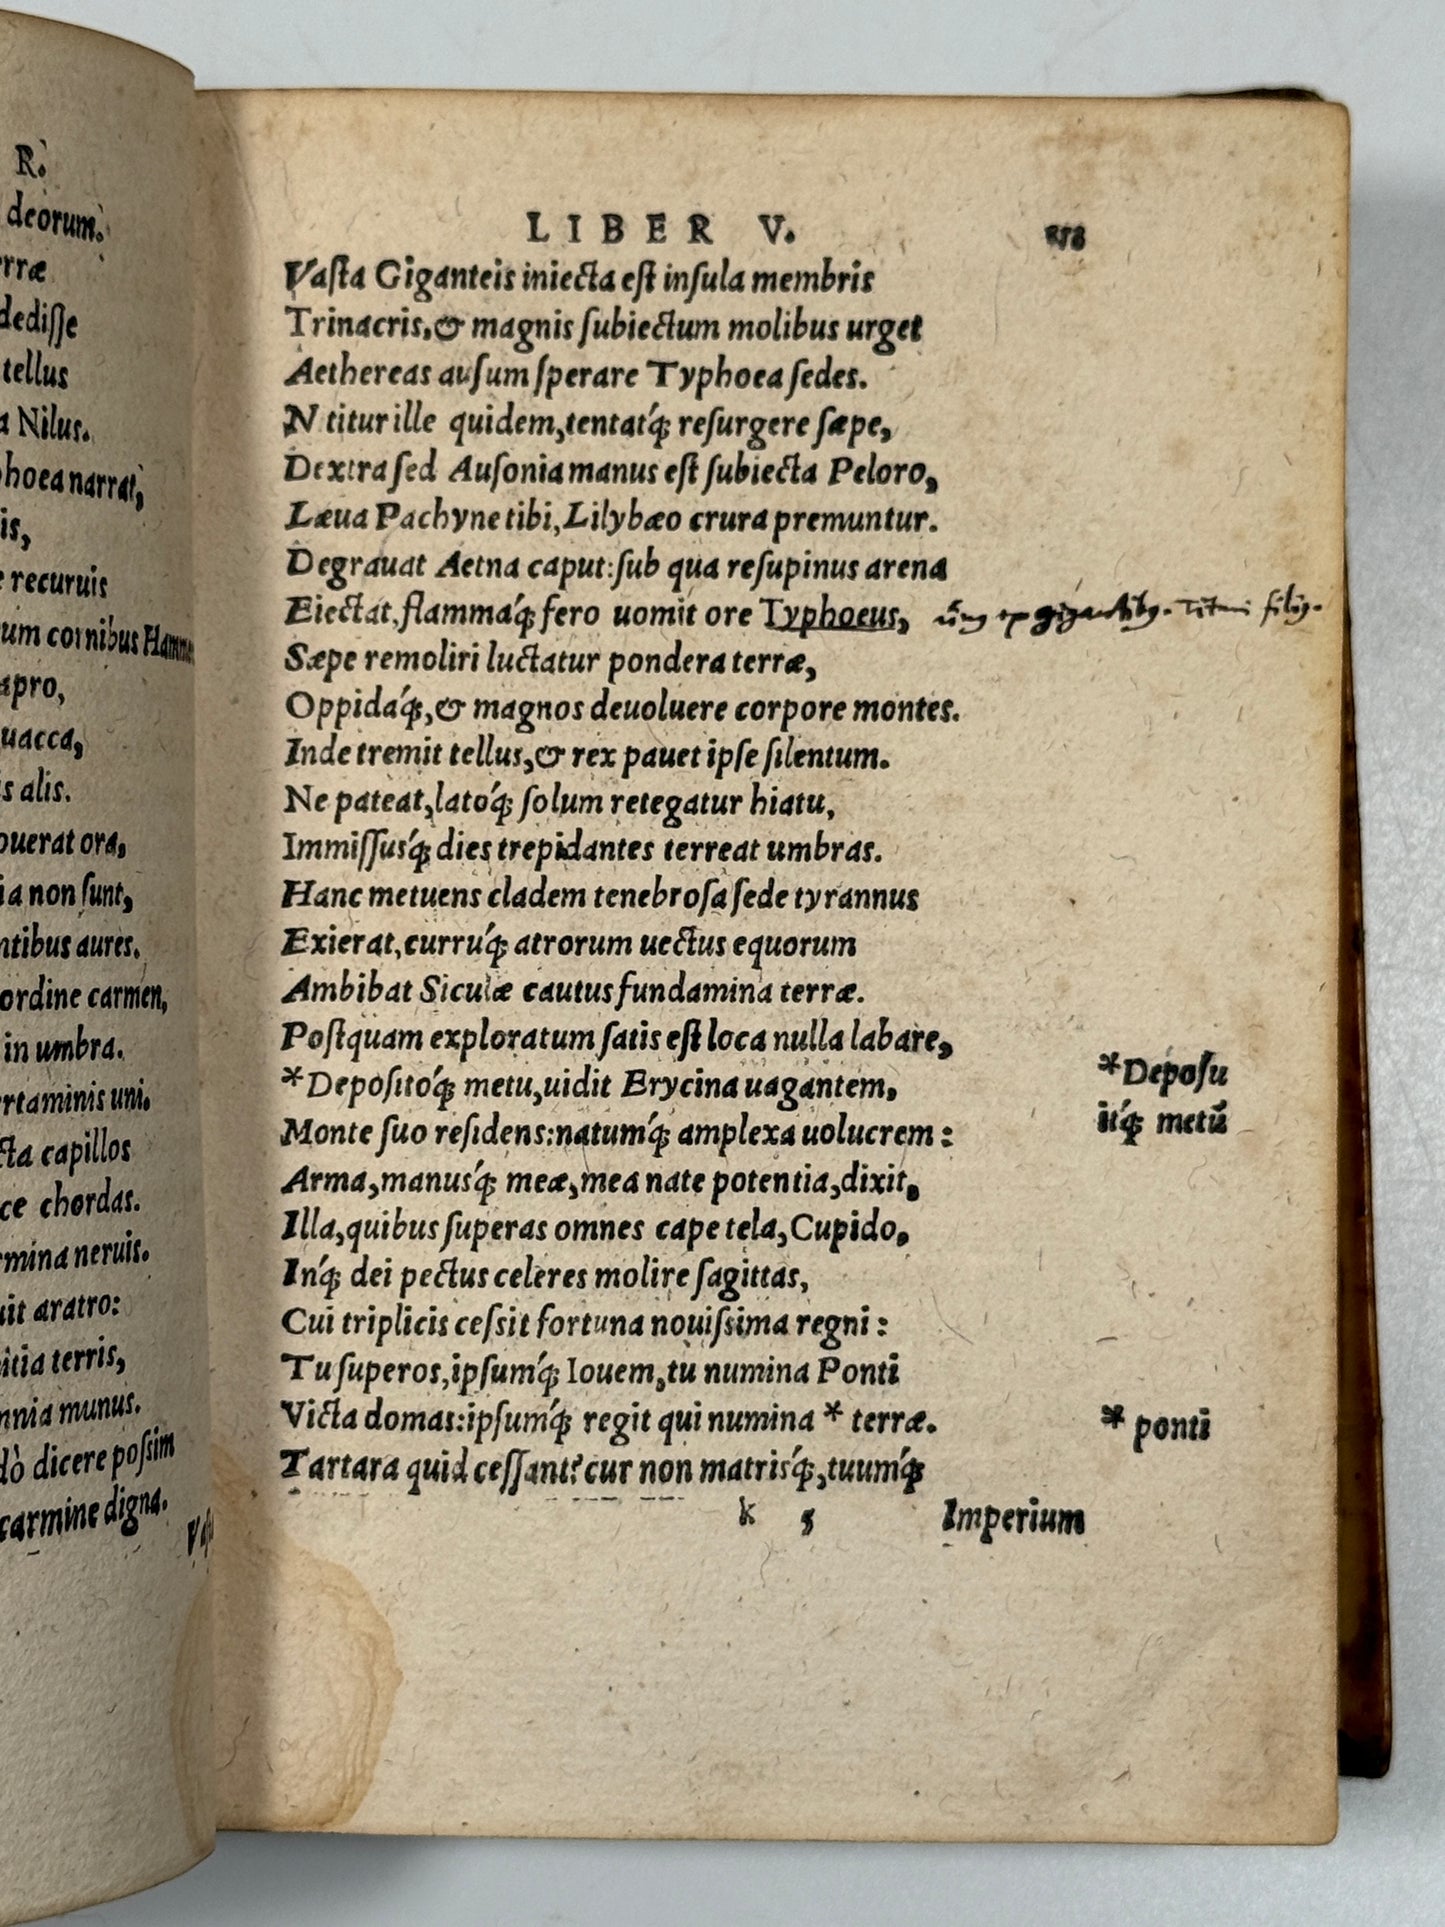 R.
deorum.
rræ
dedisſe
tellus
a Nilus.
hoea narrat,
is,
e recuruis
um cornibus Hammon
apro,
uacca,
s alis.
ouerat ora,
ia non ſunt,
ntibus aures.
ordine carmen,
in umbra.
rtaminis uni.
cta capillos
ce chordas.
rmina neruis.
uit aratro:
itia terris,
mnia munus.
dò dicere poſsim
carmine digna.
Vaſt
LIBER V.
Vaſta Giganteis iniecta eſt inſula membris
Trinacris, & magnis ſubiectum molibus urget
Aethereas auſum ſperare Typhoea ſedes.
N titur ille quidem, tentatq́; reſurgere ſæpe,
Dextra ſed Auſonia manus eſt ſubiecta Peloro,
Læua Pachyne tibi, Lilybæo crura premuntur.
Degrauat Aetna caput: ſub qua reſupinus arena
Eiectat, flammaq́; fero uomit ore Typhoeus, gigantibus. Titani filijs.
Sæpe remoliri luctatur pondera terræ,
Oppidaq́;, & magnos deuoluere corpore montes.
Inde tremit tellus, & rex pauet ipſe ſilentum.
Ne pateat, latoq́; ſolum retegatur hiatu,
Immiſſusq́; dies trepidantes terreat umbras.
Hanc metuens cladem tenebroſa ſede tyrannus
Exierat, curruq́; atrorum uectus equorum
Ambibat Siculæ cautus fundamina terræ.
Poſtquam exploratum ſatis eſt loca nulla labare,
*Depoſitoq́; metu, uidit Erycina uagantem, *Depoſu
Monte ſuo reſidens: natumq́; amplexa uolucrem: itq́; metū
Arma, manusq́; meæ, mea nate potentia, dixit,
Illa, quibus ſuperas omnes cape tela, Cupido,
Inq́; dei pectus celeres molire ſagittas,
Cui triplicis ceſsit fortuna nouiſsima regni:
Tu ſuperos, ipſumq́; Iouem, tu numina Ponti
Victa domas: ipſumq́; regit qui numina * terræ. * ponti
Tartara quid ceſſant? cur non matrisq́;, tuumq́;
k 5 Imperium